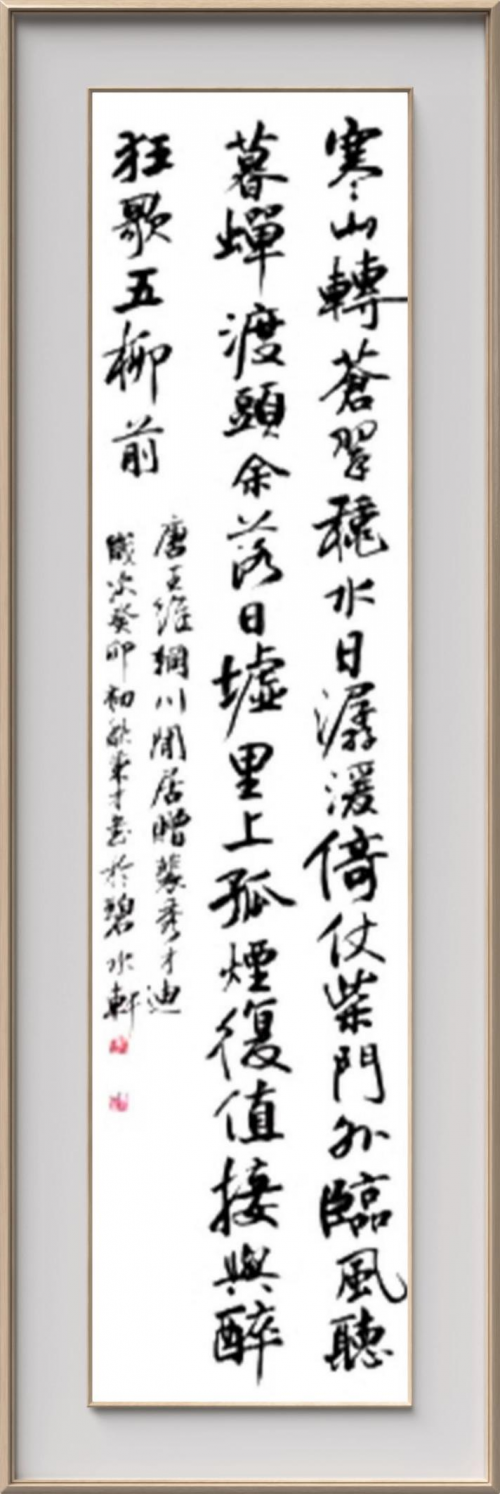 寒山轉蒼翠穐水日潺湲倚仗柴門外臨風聽
暮蟬渡頭余落日墟里上孤煙復值接與醉
狂歌五柳前
唐王維輞川閒居贈裴秀才迪
歲次癸卯初秋才書於碧水軒